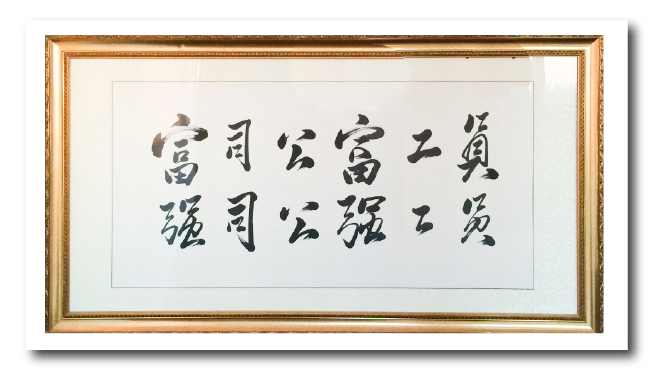 員工富公司富
员工强公司强